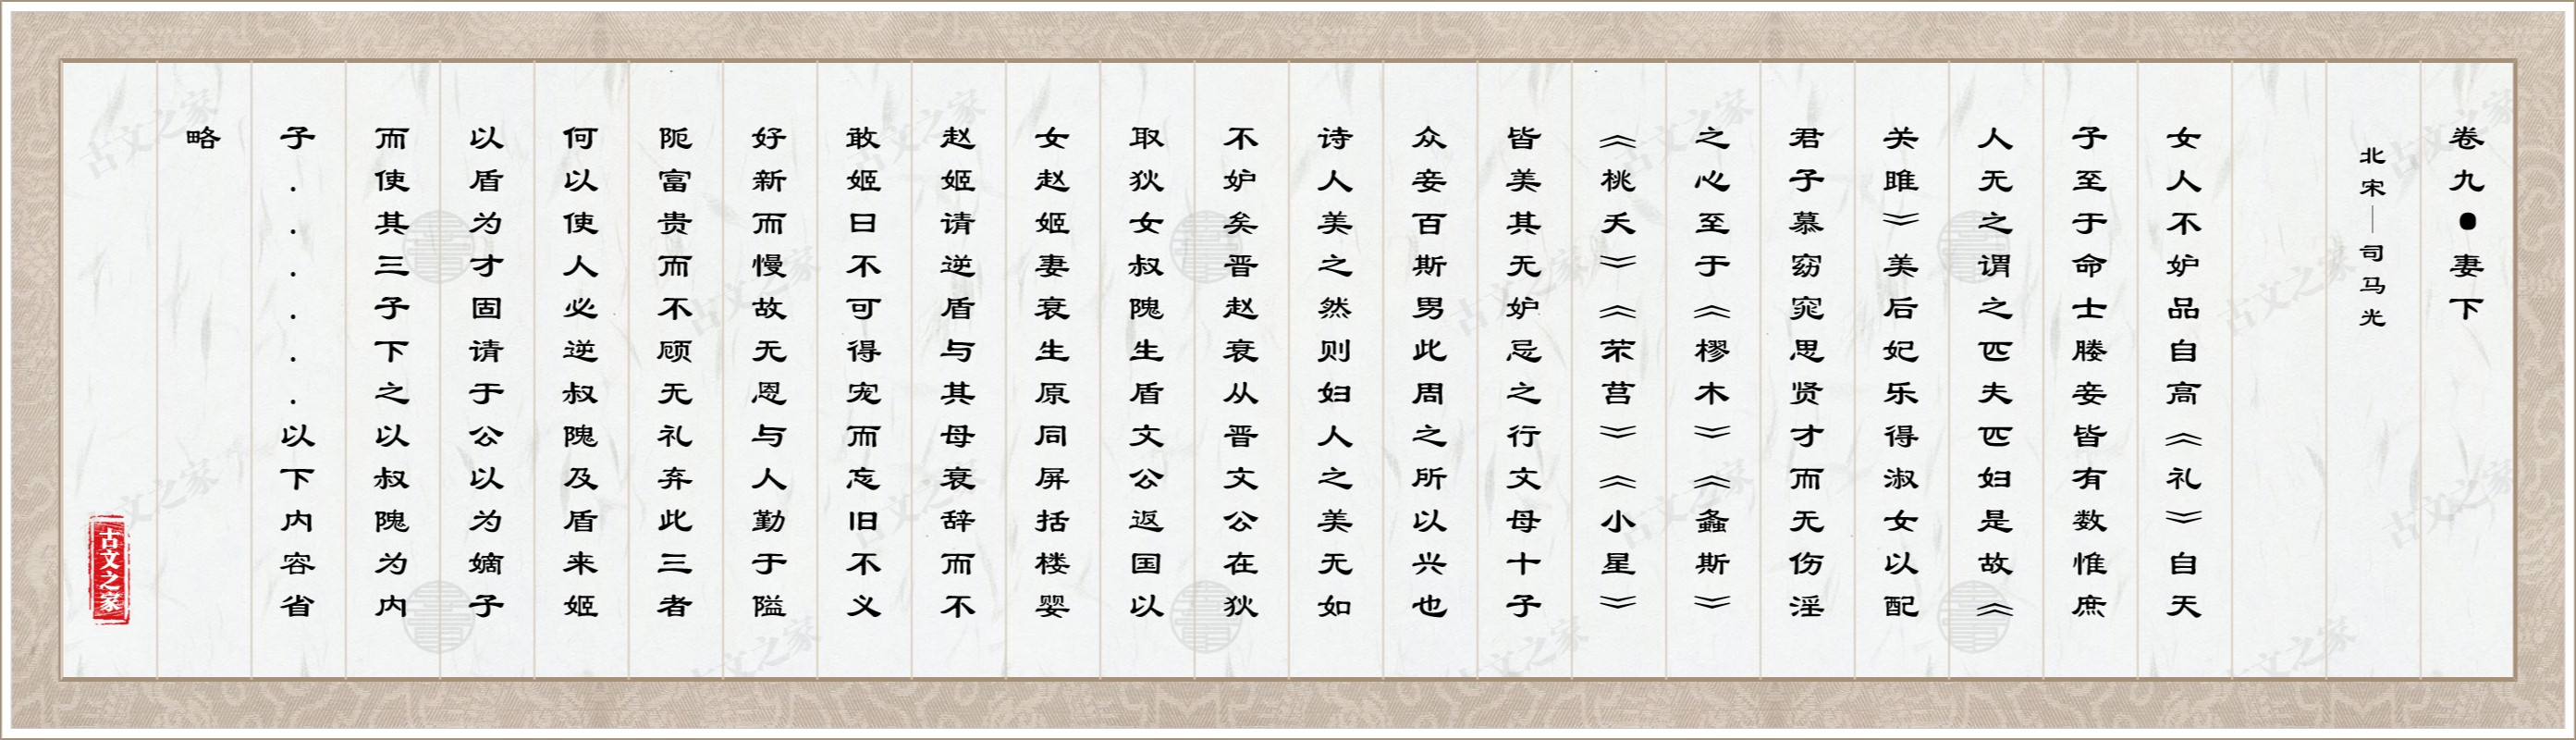 卷九●妻下
北宋—司马光
女人不妒品自高《礼》自天
子至于命士媵妾皆有数惟庶
人无之谓之匹夫匹妇是故《
关雎》美后妃乐得淑女以配
君子慕窈窕思贤才而无伤淫
之心至于《樛木》《螽斯》
《桃夭》《芣苢》《小星》
皆美其无妒忌之行文母十子
众妾百斯男此周之所以兴也
诗人美之然则妇人之美无如
不妒矣晋赵衰从晋文公在狄
取狄女叔隗生盾文公返国以
女赵姬妻衰生原同屏括楼婴
赵姬请逆盾与其母衰辞而不
敢姬曰不可得宠而忘旧不义
好新而慢故无恩与人勤于隘
阨富贵而不顾无礼弃此三者
何以使人必逆叔隗及盾来姬
以盾为才固请于公以为嫡子
而使其三子下之以叔隗为内
子......以下内容省
略
古文之家